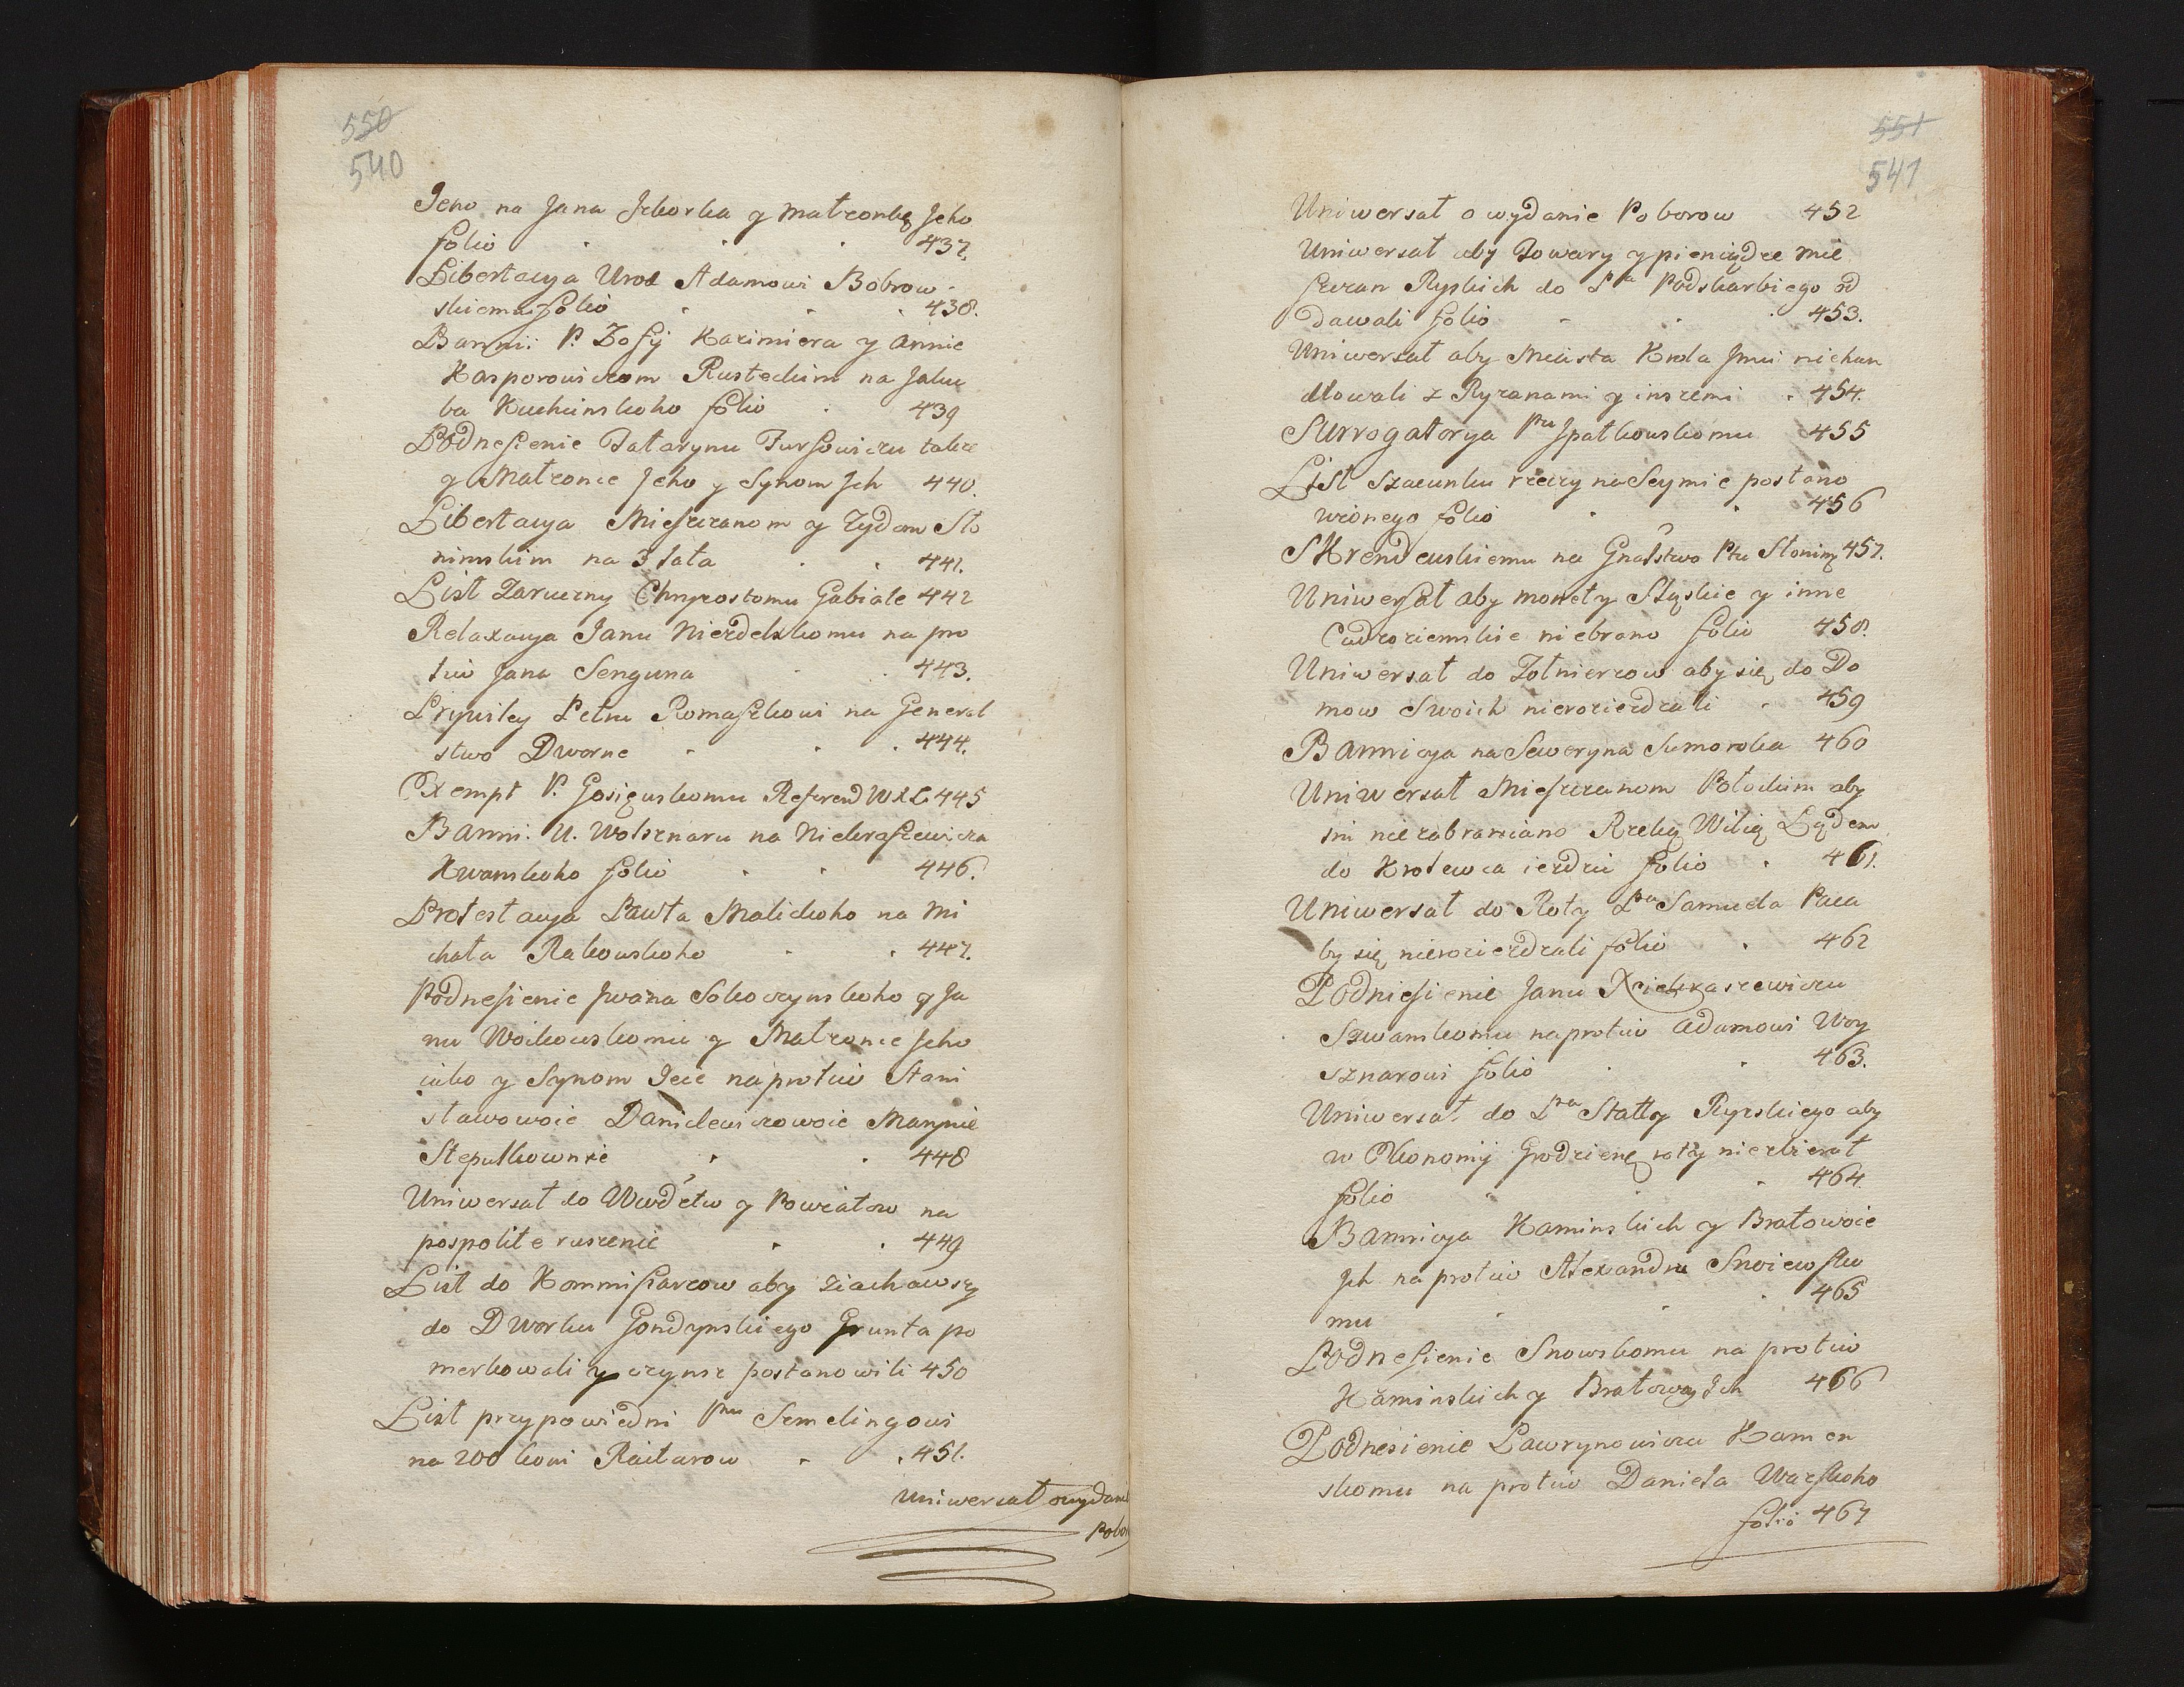 550
540
Jeho na Jana Jckorka y matronkę Jeho
folio 437.
Libertacya Urod Adamowi Bobrow
skiemu folio 438.
Banni: P. Zofij Kazimiera y Annie
Kasporowiczom Rusteckim na Jaku
ba Kuchcinskoho folio 439
Podnesienie Tatarynu Fursowiczu także
y Matronce Jeho y Synom Jch 440.
Libertacya Mieszczanom y Zydom Sło
nimskim na 3 lata 441.
List Zaruczny Chryzostomu Gabiale 442
Relaxacya Janu Niezdelskomu na pro
tiw Jana Senguna 443.
Prywiley Petru Romaszkowi na General
stwo Dworne 444.
Exempt P. Gosięwskomu Referend WXL 445
Banni: U. Wolsznaru na Niekraszewicza
Kwanskoho folio 446.
Protestacya Pawła Malickoho na Mi
chała Rakowskoho 447.
Podnesienie Jwana Sokoczynskoho y Ja
nu Woikowskomu y Matronie Jeho
iako y Synom Jeie naprotiw Stani
sławowoie Danilewiczowoie Marynie
Stepulkownie 448
Uniwersał do Wwdztw y Powiatow na
pospolite ruszenie 449
List do Kommissarzow aby ziachawszy
do Dworku Gondynskiego Grunta po
merkowali y czynsz postanowili 450
List przypowiedni Pnu Semelingowi
na 200 koni Raitarow 451.
Uniwersał o wydanie
Pobo
551
541
Uniwersał o wydanie Poborow 452
Uniwersał aby Towary y pieniądze mie
szczan Ryskich do Pna Podskarbiego od
dawali folio 453.
Uniwersał aby Miasta Krola Jmci niehan
dlowali z Ryzanami y inszemi 454.
Surrogatorya Pnu Jpatkowskomu 455
List Szacunku rzeczy na Seymie postano
wionego folio 456
Skrendewskiemu na Gnalstwo Ptu Słonim 457.
Uniwersał aby monety Sląskie y inne
Cudzoziemskie niebrano folio 458.
Uniwersał do Zołnierzow aby się do Do
mow Swoich nierozieżdzali 459
Bannicya na Seweryna Sumoroka 460
Uniwersał Mieszczanom Połockim aby
im niezabraniano Rzeką Wilią Lądem
do Krolewca ieździć folio 461.
Uniwersał do Roty Pna Samuela Paca
by się nierozieżdzali folio 462
Podniesienie Janu Niekraszewiczu
Szwanskomu naprotiw Adamowi Woy
sznarowi folio 463.
Uniwersał do Pna Stally Ryzskiego aby
w Ekonomij Grodzienę roty niezbierał
folio 464
Bannicya Kaminskich y Bratowoie
Jch na protiw Alexandra Snoiewsko
mu 465
Podnesienie Snowskomu na protiw
Kaminskich y Bratowoy Jch 466
Podnesienie Lawrynowiczu Kamen
skomu na protiw Daniela Warskoho
folio 467